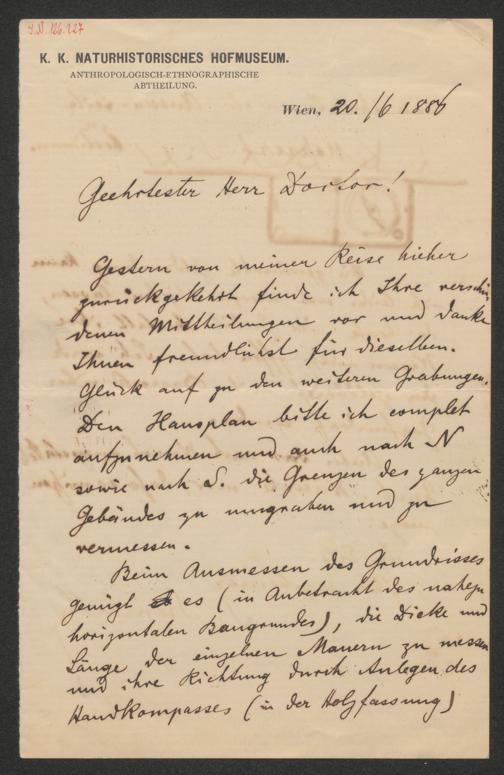 S.N. 126.727
K. K. NATURHISTORISCHES HOFMUSEUM.
ANTHROPOLOGISCH-ETHNOGRAPHISCHE
ABTHEILUNG.
Wien, 20./6 1886
Geehrtester Herr Doctor!
Gestern von meiner Reise hieher
zurückgekehrt finde ich Ihre verschie
denen Mittheilungen vor und danke
Ihnen freundlichst für dieselben.
Glück auf zu den weiteren Grabungen.
Den Hausplan bitte ich complet
aufzunehmen und auch nach N
sowie nach S. die Grenzen des ganzen
Gebäudes zu umgraben und zu
vermessen.
Beim Ausmessen des Grundrisses
genügt es (in Anbetracht des nahezu
horizontalen Baugrundes), die Dicke und
Länge der einzelnen Mauern zu messen
und ihre Richtung durch Anlegen des
Handkompasses (in der Holzfassung)